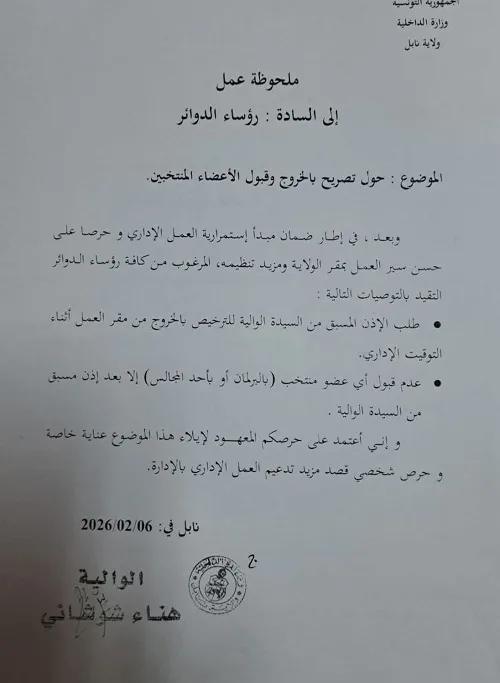 الجمهورية التونسية
وزارة الداخلية
ولاية نابل
ملحوظة عمل
إلى السادة : رؤساء الدوائر
الموضوع : حول تصريح بالخروج وقبول الأعضاء المنتخبين.
وبعد ، في إطار ضمان مبدأ إستمرارية العمل الإداري و حرصا على
حسن سير العمل بمقر الولاية ومزيد تنظيمه، المرغوب من كافة رؤساء الدوائر
التقيد بالتوصيات التالية :
● طلب الإذن المسبق من السيدة الوالية للترخيص بالخروج من مقر العمل أثناء
التوقيت الإداري.
● عدم قبول أي عضو منتخب (بالبرلمان أو بأحد المجالس) إلا بعد إذن مسبق
من السيدة الوالية .
و إني أعتمد على حرصكم المعهود لإيلاء هذا الموضوع عناية خاصة
و حرص شخصي قصد مزيد تدعيم العمل الإداري بالإدارة.
نابل في: 2026/02/06
الوالية
هناء شوشاني